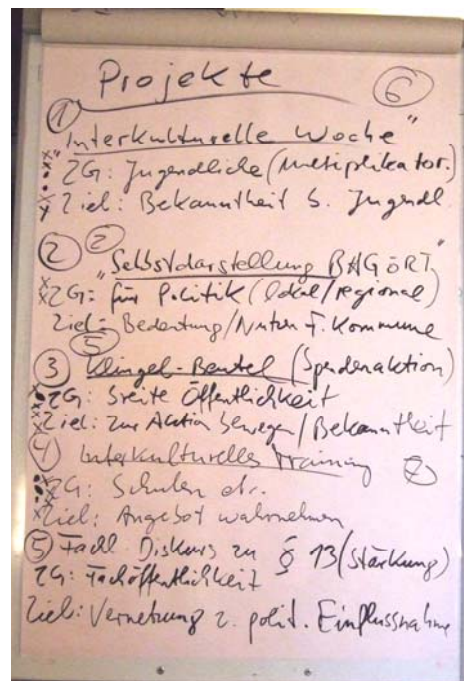 Projekte 6
1
"Interkulturelle Woche"
ZG: Jugendliche (Multiplikator.)
Ziel: Bekanntheit b. Jugendl.
2 2
"Selbstdarstellung BAG ÖRT"
ZG: für Politik (lokal/regional)
Ziel: Bedeutung/Nutzen f. Kommune
5
3 Klingel-Beutel (Spendenaktion)
ZG: breite Öffentlichkeit
Ziel: zur Aktion bewegen/Bekanntheit
4 Interkulturelles Training
ZG: Schulen etc.
Ziel: Angebot wahrnehmen
5 Fachl. Diskurs zu § 13 (Stärkung)
ZG: Fachöffentlichkeit
Ziel: Vernetzung z. polit. Einflussnahme